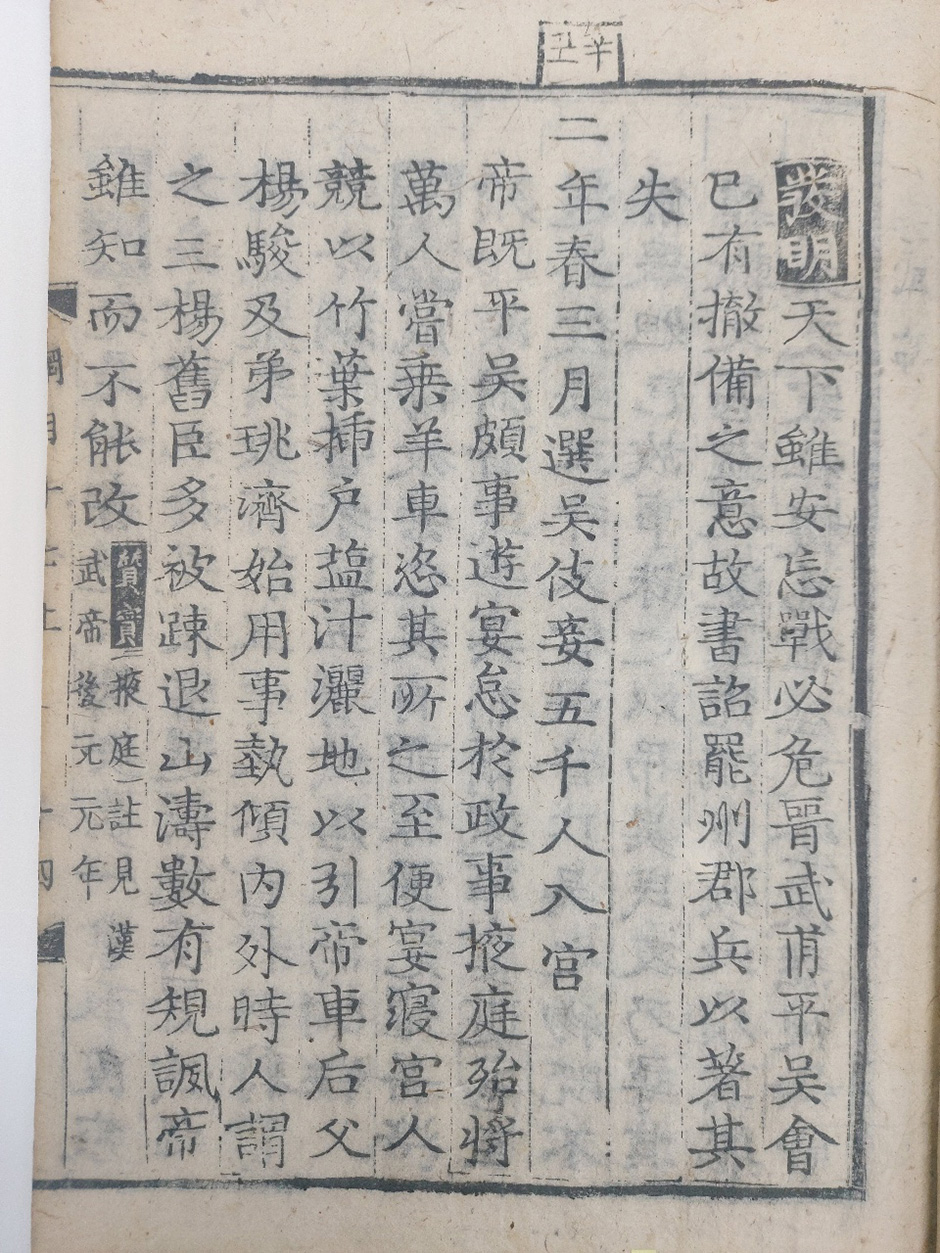 辛丑
發明天下雖安忘戰必危晉武甫平吳會
已有撤備之意故書詔罷州郡兵以著其
失
二年春三月選吳伎妾五千人入宮
帝既平吳頗事遊宴怠於政事掖庭殆將
萬人嘗乗羊車恣其所之至便宴寢宮人
競以竹葉揷户塩汁灑地以引帝車后父
楊駿及弟珧濟始用事埶傾内外時人謂
之三楊舊臣多被踈退山濤數有規諷帝
雖知而不能改
質實掖庭註見漢
武帝後元元年